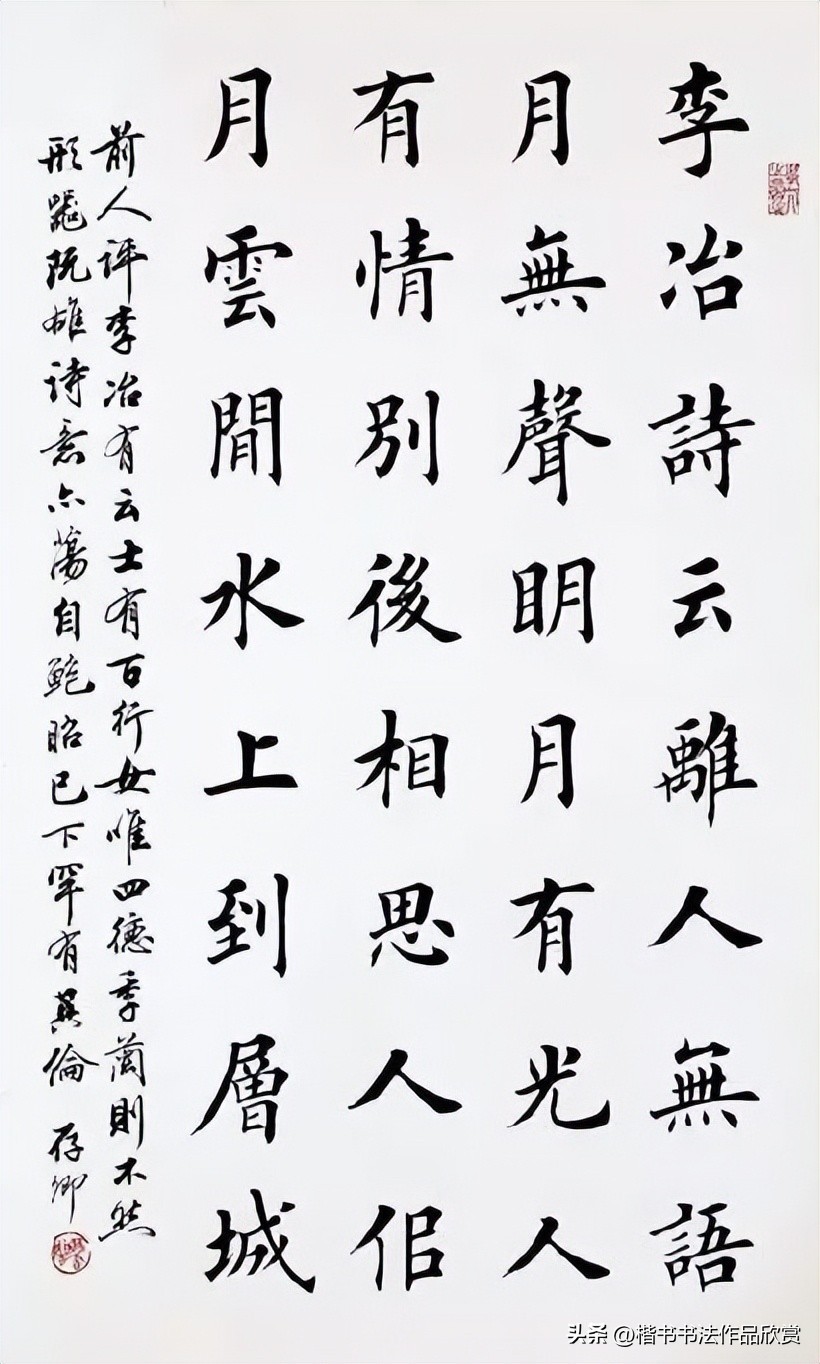 李冶詩云離人無語
月無聲明月有光人
有情別後相思人佀
月雲閒水上到層城
前人評李冶有云士有百行女唯四德季蘭則不然
形器旣雄詩意亦蕩自鮑昭已下罕有其倫 存卿
头条 @楷书书法作品欣赏